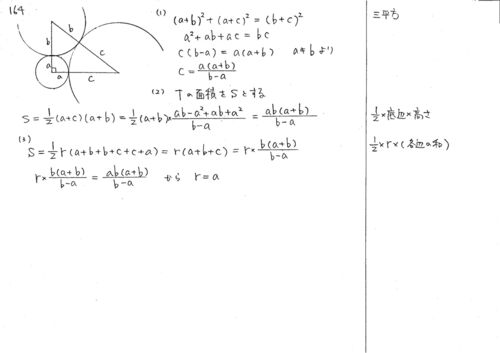 164
b
b
a
a
c
c
(1) (a+b)²+(a+c)²=(b+c)²
a²+ab+ac=bc
c(b-a)=a(a+b) a≠bより
c=\frac{a(a+b)}{b-a}
(2) Tの面積をSとする
S=\frac{1}{2}(a+c)(a+b)=\frac{1}{2}(a+b)×\frac{ab-a²+ab+a²}{b-a}=\frac{ab(a+b)}{b-a}
(3)
S=\frac{1}{2}r(a+b+b+c+c+a)=r(a+b+c)=r×\frac{b(a+b)}{b-a}
r×\frac{b(a+b)}{b-a}=\frac{ab(a+b)}{b-a} から r=a
三平方
\frac{1}{2}×底辺×高さ
\frac{1}{2}×r×(各辺の和)